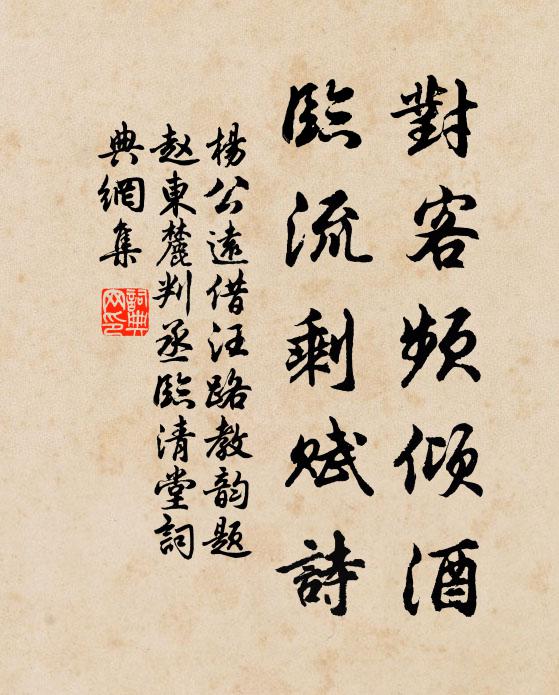 對客頻傾酒
臨流剩赋詩
楊公遠借汪路教韵題
赵東麓判丞臨清堂詞
典網集
詞典
网印